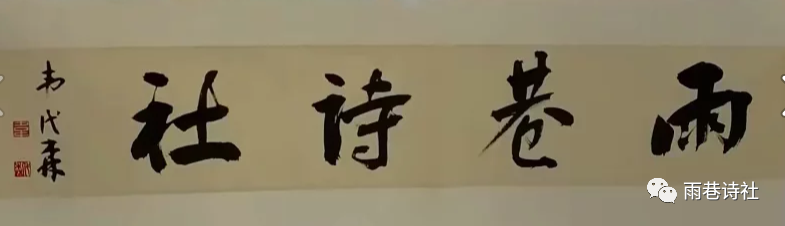 雨巷詩社
韦代森
雨巷诗社